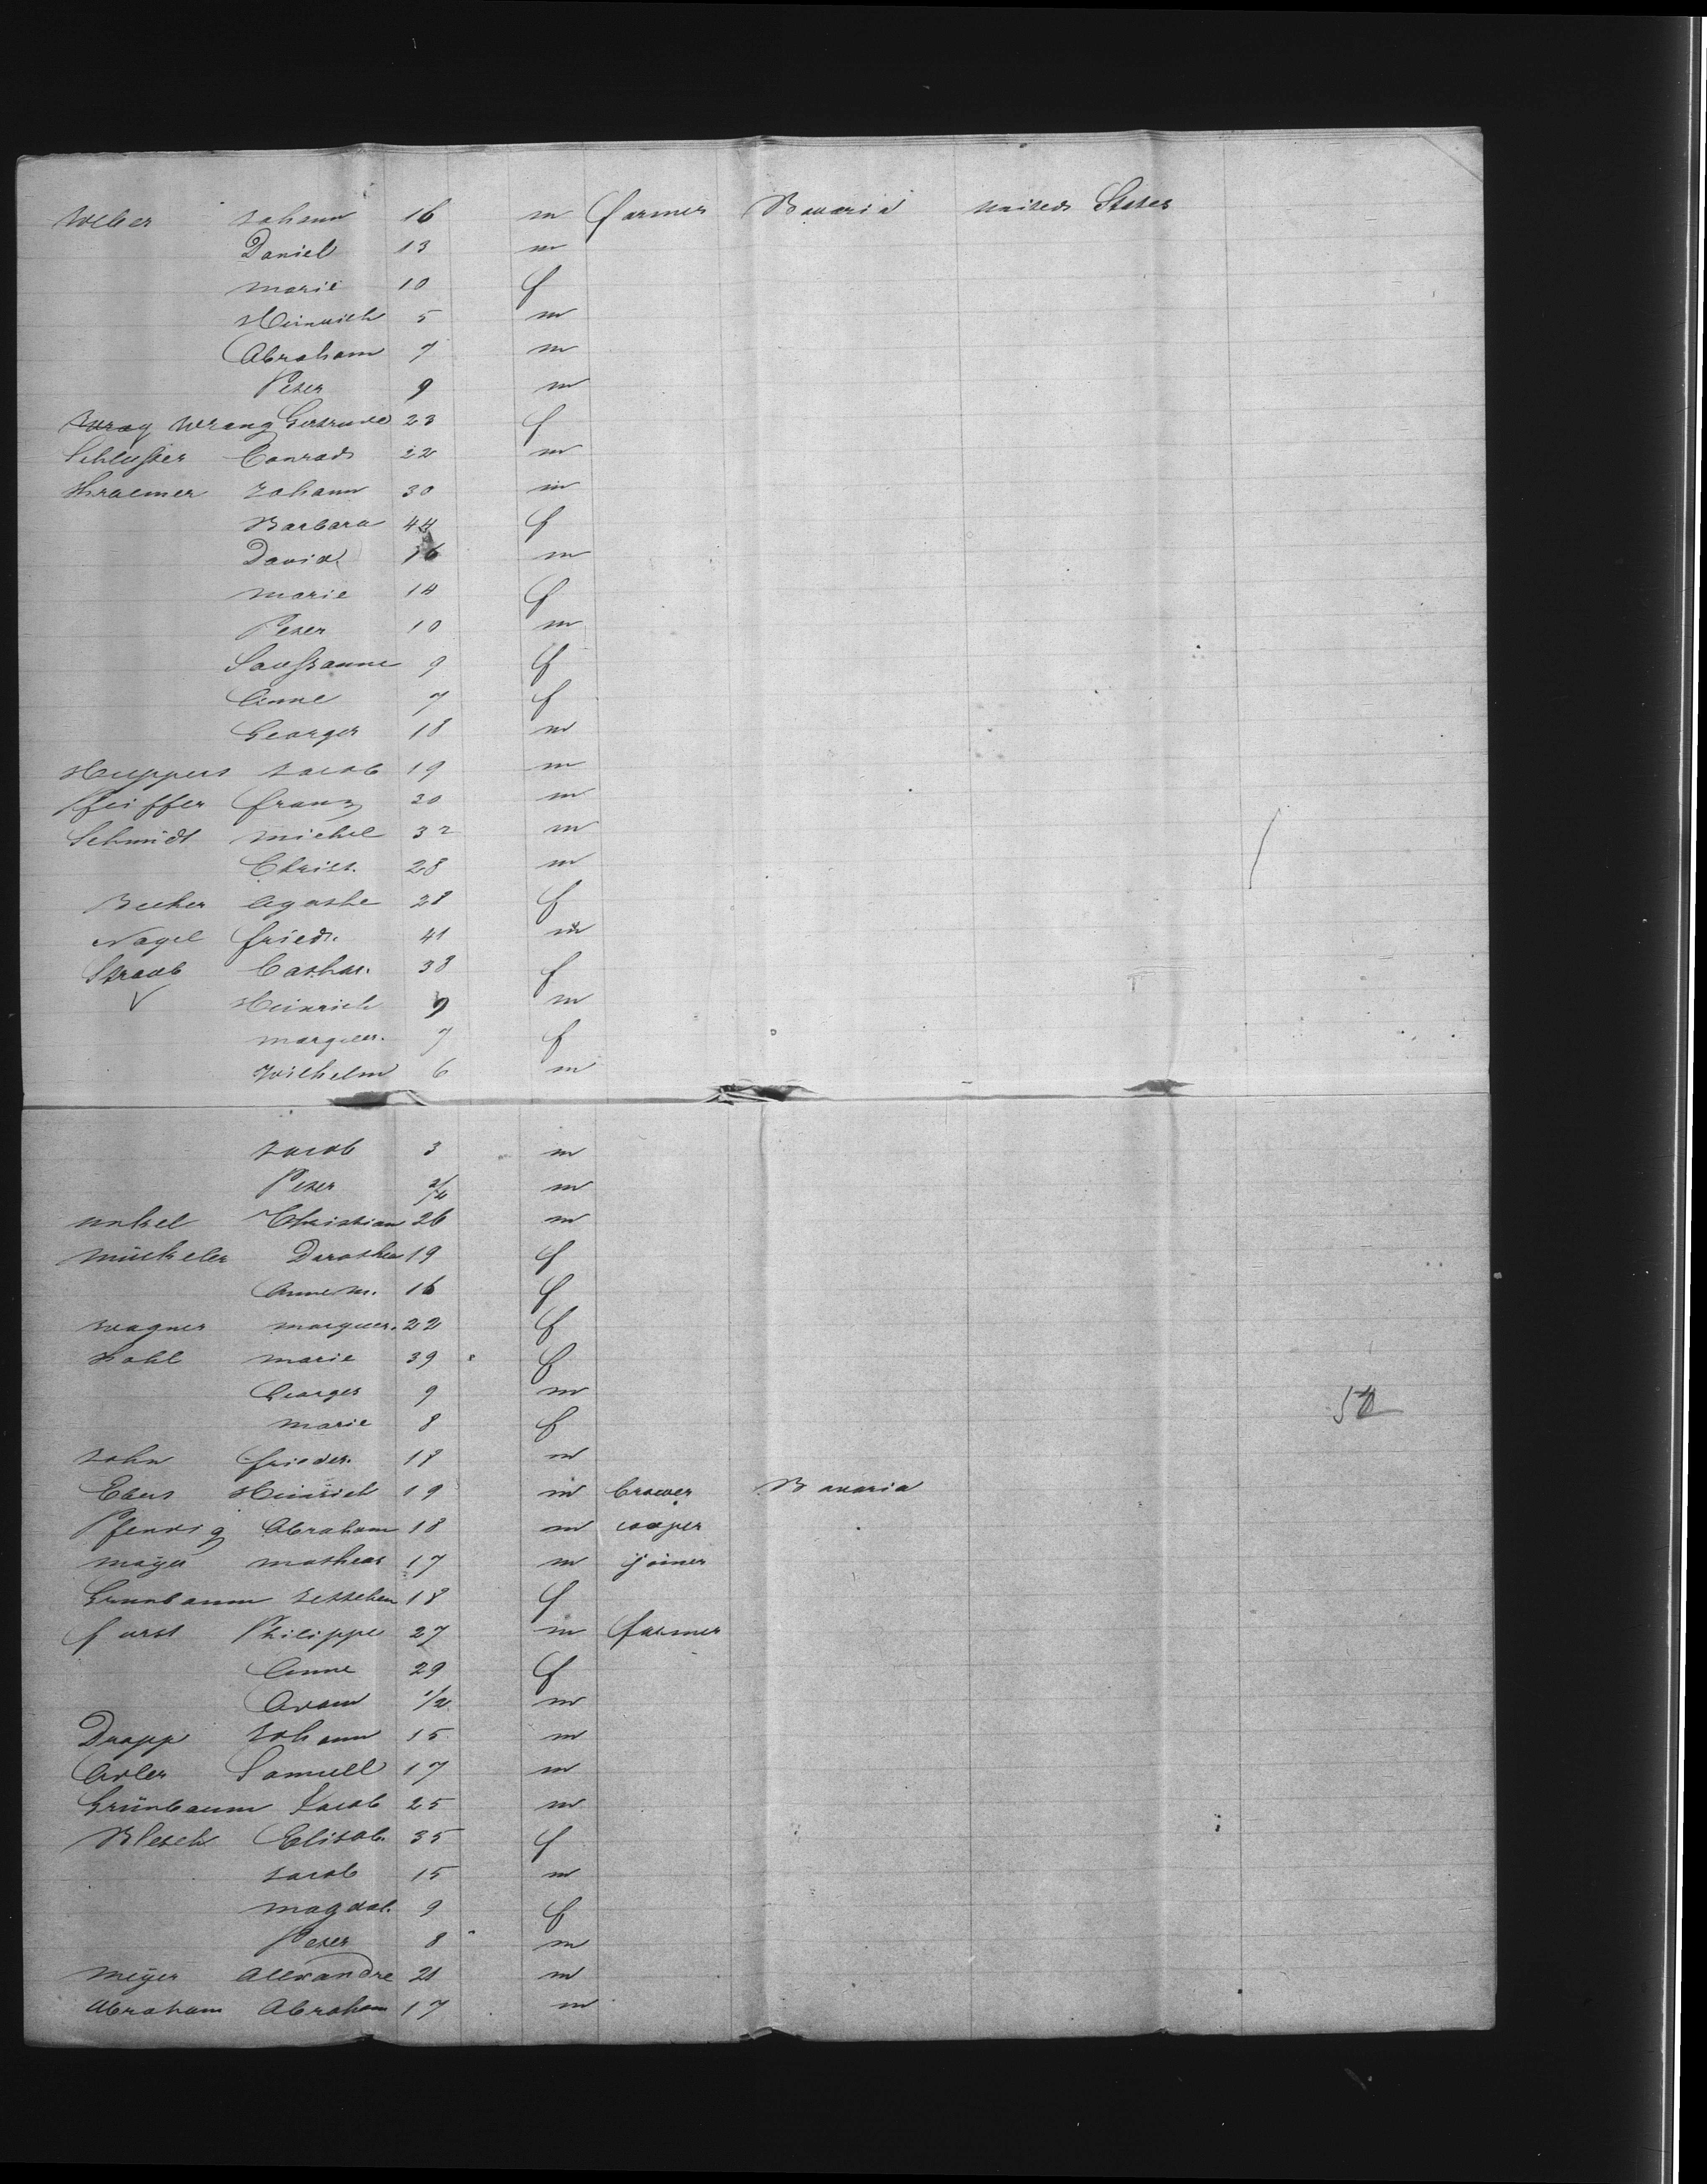 Weber Johann 16 m farmer Bavaria United States
Daniel 13 m
Marie 10 f
Heinrich 5 m
Abraham 7 m
Peter 9 m
Wrang Gertrude 23 f
Conrad 22 m
Kraemer Johann 30 m
Barbara 44 f
David 16 m
Marie 14 f
Peter 10 m
9 f
Anne 7 f
Georges 18 m
Huppers Jacob 19 m
Pfeiffer Franz 20 m
Schmidt Michel 32 m
Christ. 28 m
Becker Agathe 28 f
Nagel Friedr. 41 m
Straub Cathar. 38 f
Heinrich 9 m
Marguer. 7 f
Wilhelm 6 m
Jacob 3 m
Peter m
Unkel Christian 26 m
Mückeler Dorothea 19 f
Anne M. 16 f
Wagner Marguer. 22 f
Kohl Marie 39 f
Georges 9 m
Marie 8 f
John Frieder. 18 m
Ebers Heinrich 19 m brower Bavaria
Abraham 18 m cooper
Mayer Matheas 17 m joiner
Grunbaum Jettchen 18 f
Furst Philippe 27 m farmer
Anne 29 f
Adam 1/2 m
Drapp Johann 15 m
Adler Samuell 17 m
Grünbaum Jacob 25 m
Blesch Elisab. 35 f
Jacob 15 m
Magdal. 9 f
Peter 8 m
Meÿer Alexandre 21 m
Abraham Abraham 17 m